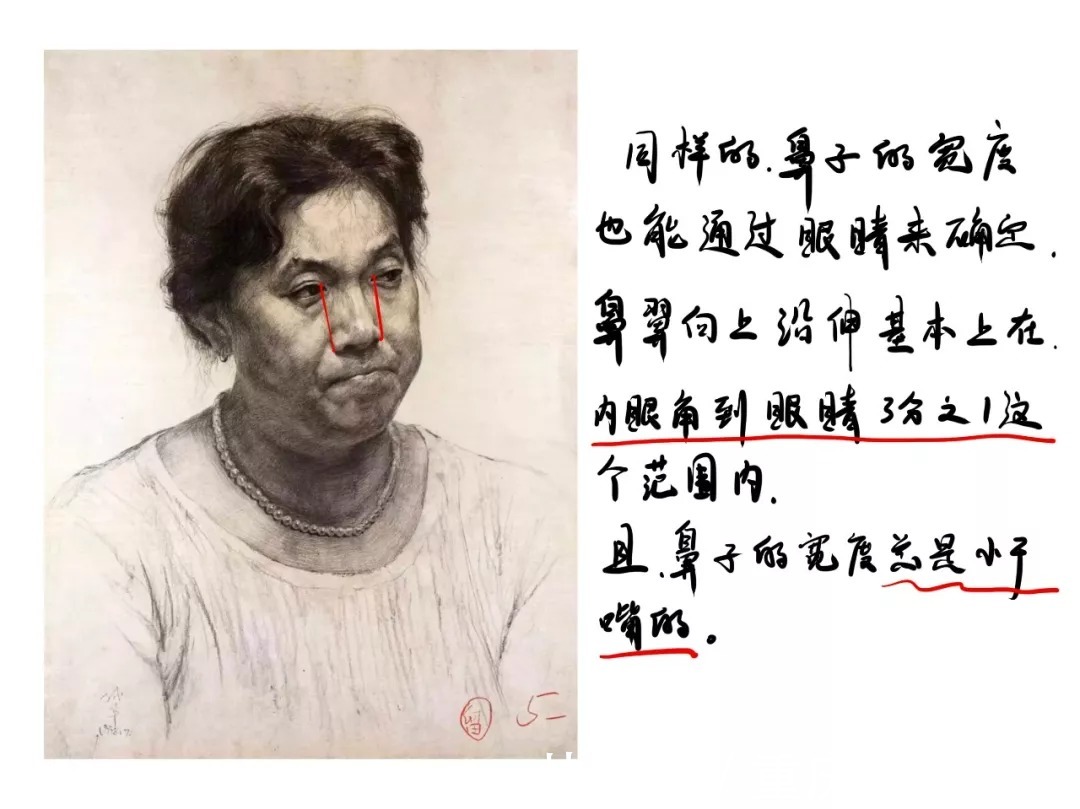 同样的.鼻子的宽度
也能通过眼睛来确定.
鼻翼向上沿伸基本上在.
内眼角到眼睛3分之1这
个范围内.
且.鼻子的宽度总是小于
嘴的。
留 5一